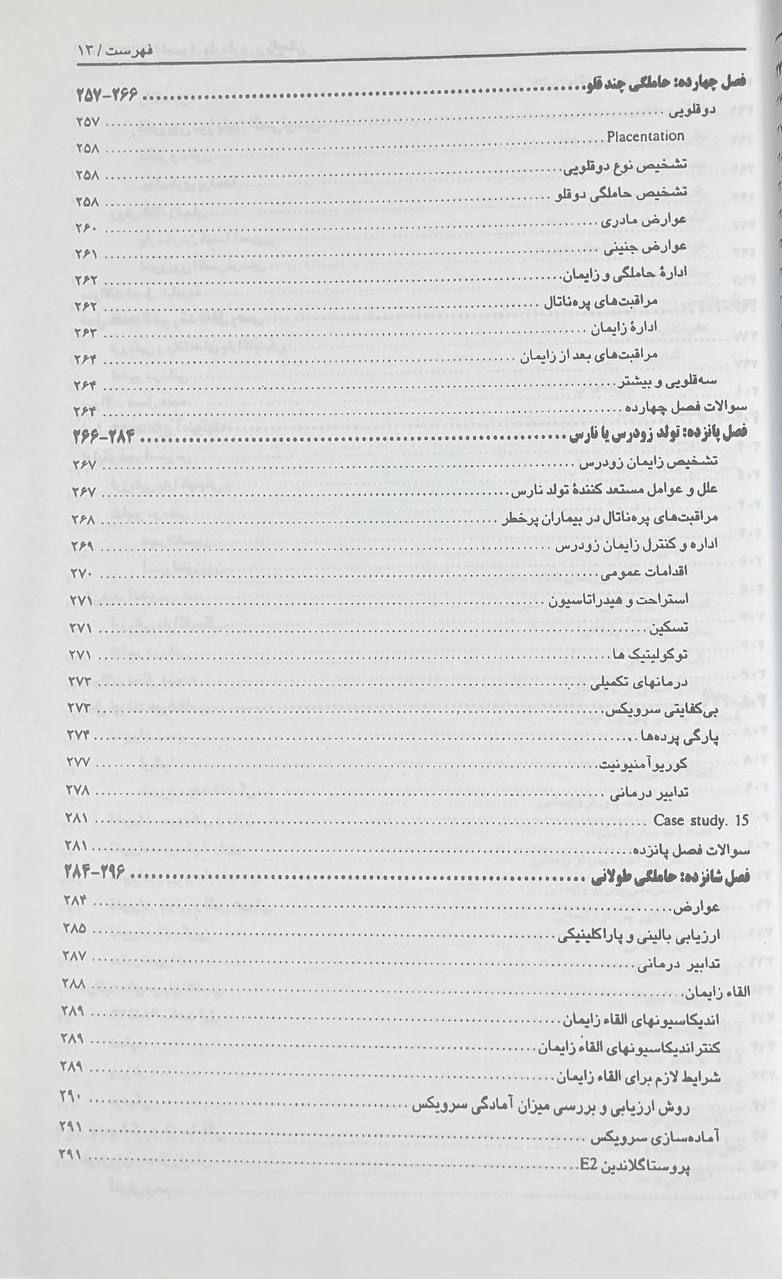 فهرست / ۱۳
فصل چهارده: حاملگی چند قلو ........ ۲۶۶-۲۵۷
دوقلویی ........ ۲۵۷
Placentation ........ ۲۵۸
تشخیص نوع دوقلویی ........ ۲۵۸
تشخیص حاملگی دوقلو ........ ۲۵۸
عوارض مادری ........ ۲۶۰
عوارض جنینی ........ ۲۶۱
ادارهٔ حاملگی و زایمان ........ ۲۶۲
مراقبت‌های پره‌ناتال ........ ۲۶۲
ادارهٔ زایمان ........ ۲۶۳
مراقبت‌های بعد از زایمان ........ ۲۶۴
سه‌قلویی و بیشتر ........ ۲۶۴
سوالات فصل چهارده ........ ۲۶۴
فصل پانزده: تولد زودرس یا نارس ........ ۲۸۴-۲۶۶
تشخیص زایمان زودرس ........ ۲۶۷
علل و عوامل مستعد کنندهٔ تولد نارس ........ ۲۶۷
مراقبت‌های پره‌ناتال در بیماران پرخطر ........ ۲۶۸
اداره و کنترل زایمان زودرس ........ ۲۶۹
اقدامات عمومی ........ ۲۷۰
استراحت و هیدراتاسیون ........ ۲۷۱
تسکین ........ ۲۷۱
توکولیتیک ها ........ ۲۷۱
درمانهای تکمیلی ........ ۲۷۳
بی‌کفایتی سرویکس ........ ۲۷۳
پارگی پرده‌ها ........ ۲۷۴
کوریوآمنیونیت ........ ۲۷۷
تدابیر درمانی ........ ۲۷۸
Case study. 15 ........ ۲۸۱
سوالات فصل پانزده ........ ۲۸۱
فصل شانزده: حاملگی طولانی ........ ۲۹۶-۲۸۴
عوارض ........ ۲۸۴
ارزیابی بالینی و پاراکلینیکی ........ ۲۸۵
تدابیر درمانی ........ ۲۸۷
القاء زایمان ........ ۲۸۸
اندیکاسیونهای القاء زایمان ........ ۲۸۹
کنتراندیکاسیونهای القاء زایمان ........ ۲۸۹
شرایط لازم برای القاء زایمان ........ ۲۸۹
روش ارزیابی و بررسی میزان آمادگی سرویکس ........ ۲۹۰
آماده‌سازی سرویکس ........ ۲۹۱
پروستاگلاندین E2 ........ ۲۹۱